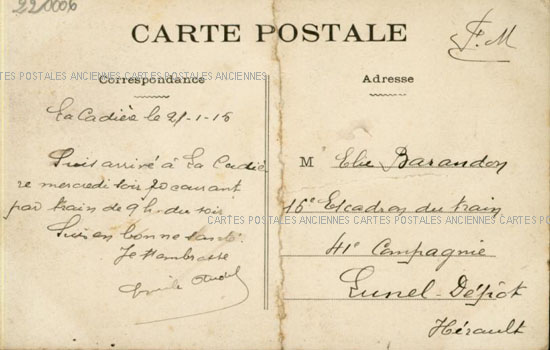 220006
CARTE POSTALE
F.M
CARTES POSTALES ANCIENNES CARTES POSTALES ANCIENNES
Correspondance
Adresse
La Cadière le 21-1-15
Suis arrivé à La Cadiè
re mercredi soir 20 courant
par train de 9h. du soir
Suis en bonne santé.
Je t'embrasse
Emile
M Elie Barandon
16e Escadron du train
CARTES POSTALES ANCIENNES CARTES POSTALES ANCIENNES CARTES POS
41e Compagnie
Lunel-Dépôt
Hérault